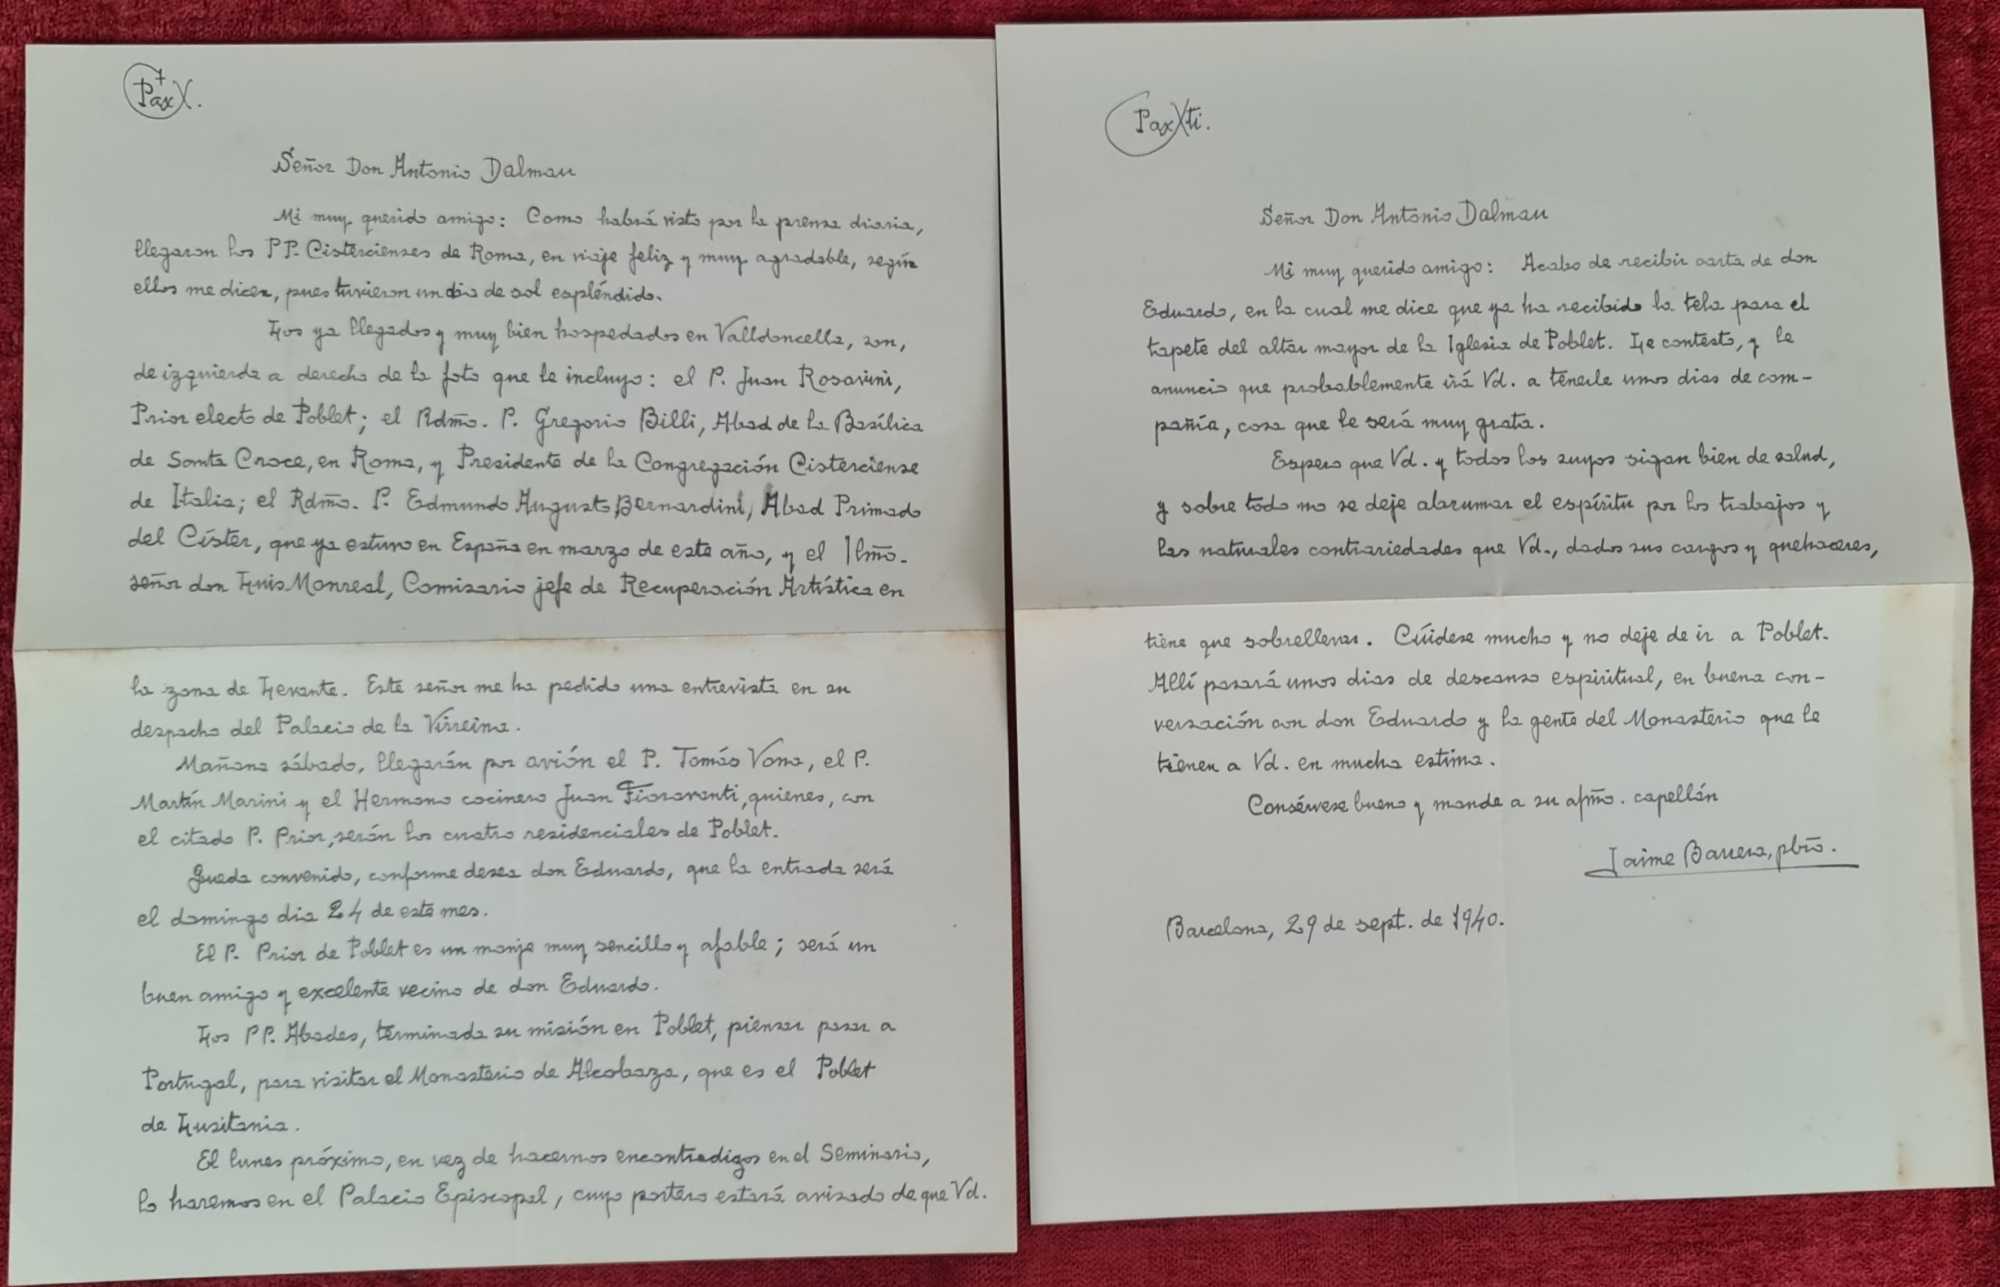 Pax X.
Señor Don Antonio Dalmau
Mi muy querido amigo: Como habrá visto por la prensa diaria,
llegaron los PP. Cistercienses de Roma, en viaje feliz y muy agradable, según
ellos me dicen, pues tuvieron un dia de sol espléndido.
Los ya llegados y muy bien hospedados en Valldoncella, son,
de izquierda a derecha de la foto que le incluyo: el P. Juan Rosavini,
Prior electo de Poblet; el Rdmo. P. Gregorio Billi, Abad de la Basílica
de Santa Croce, en Roma, y Presidente de la Congregación Cisterciense
de Italia; el Rdmo. P. Edmundo Augusto Bernardini, Abad Primado
del Císter, que ya estuvo en España en marzo de este año, y el Ilmo.
señor don Luis Monreal, Comisario jefe de Recuperación Artística en
la zona de Levante. Este señor me ha pedido una entrevista en su
despacho del Palacio de la Virreina.
Mañana sábado, llegarán por avión el P. Tomás Vona, el P.
Martín Marini y el Hermano cocinero Juan Fioravanti, quienes, con
el citado P. Prior, serán los cuatro residenciales de Poblet.
Queda convenido, conforme desea don Eduardo, que la entrada será
el domingo dia 24 de este mes.
El P. Prior de Poblet es un monje muy sencillo y afable; será un
buen amigo y excelente vecino de don Eduardo.
Los PP. Abades, terminada su misión en Poblet, piensan pasar a
Portugal, para visitar el Monasterio de Alcobaza, que es el Poblet
de Lusitania.
El lunes próximo, en vez de hacernos encontradizos en el Seminario,
lo haremos en el Palacio Episcopal, cuyo portero estará avisado de que Vd.
Pax Xti.
Señor Don Antonio Dalmau
Mi muy querido amigo: Acabo de recibir carta de don
Eduardo, en la cual me dice que ya ha recibido la tela para el
tapete del altar mayor de la Iglesia de Poblet. Le contesto, y le
anuncio que probablemente irá Vd. a tenerle unos dias de com-
pañía, cosa que le será muy grata.
Espero que Vd. y todos los suyos sigan bien de salud,
y sobre todo no se deje abrumar el espíritu por los trabajos y
las naturales contrariedades que Vd., dados sus cargos y quehaceres,
tiene que sobrellevar. Cúidese mucho y no deje de ir a Poblet.
Allí pasará unos dias de descanso espiritual, en buena con-
versación con don Eduardo y la gente del Monasterio que le
tienen a Vd. en mucha estima.
Consérvese bueno y mande a su afmo. capellán
Jaime Barrera, pbro.
Barcelona, 29 de sept. de 1940.